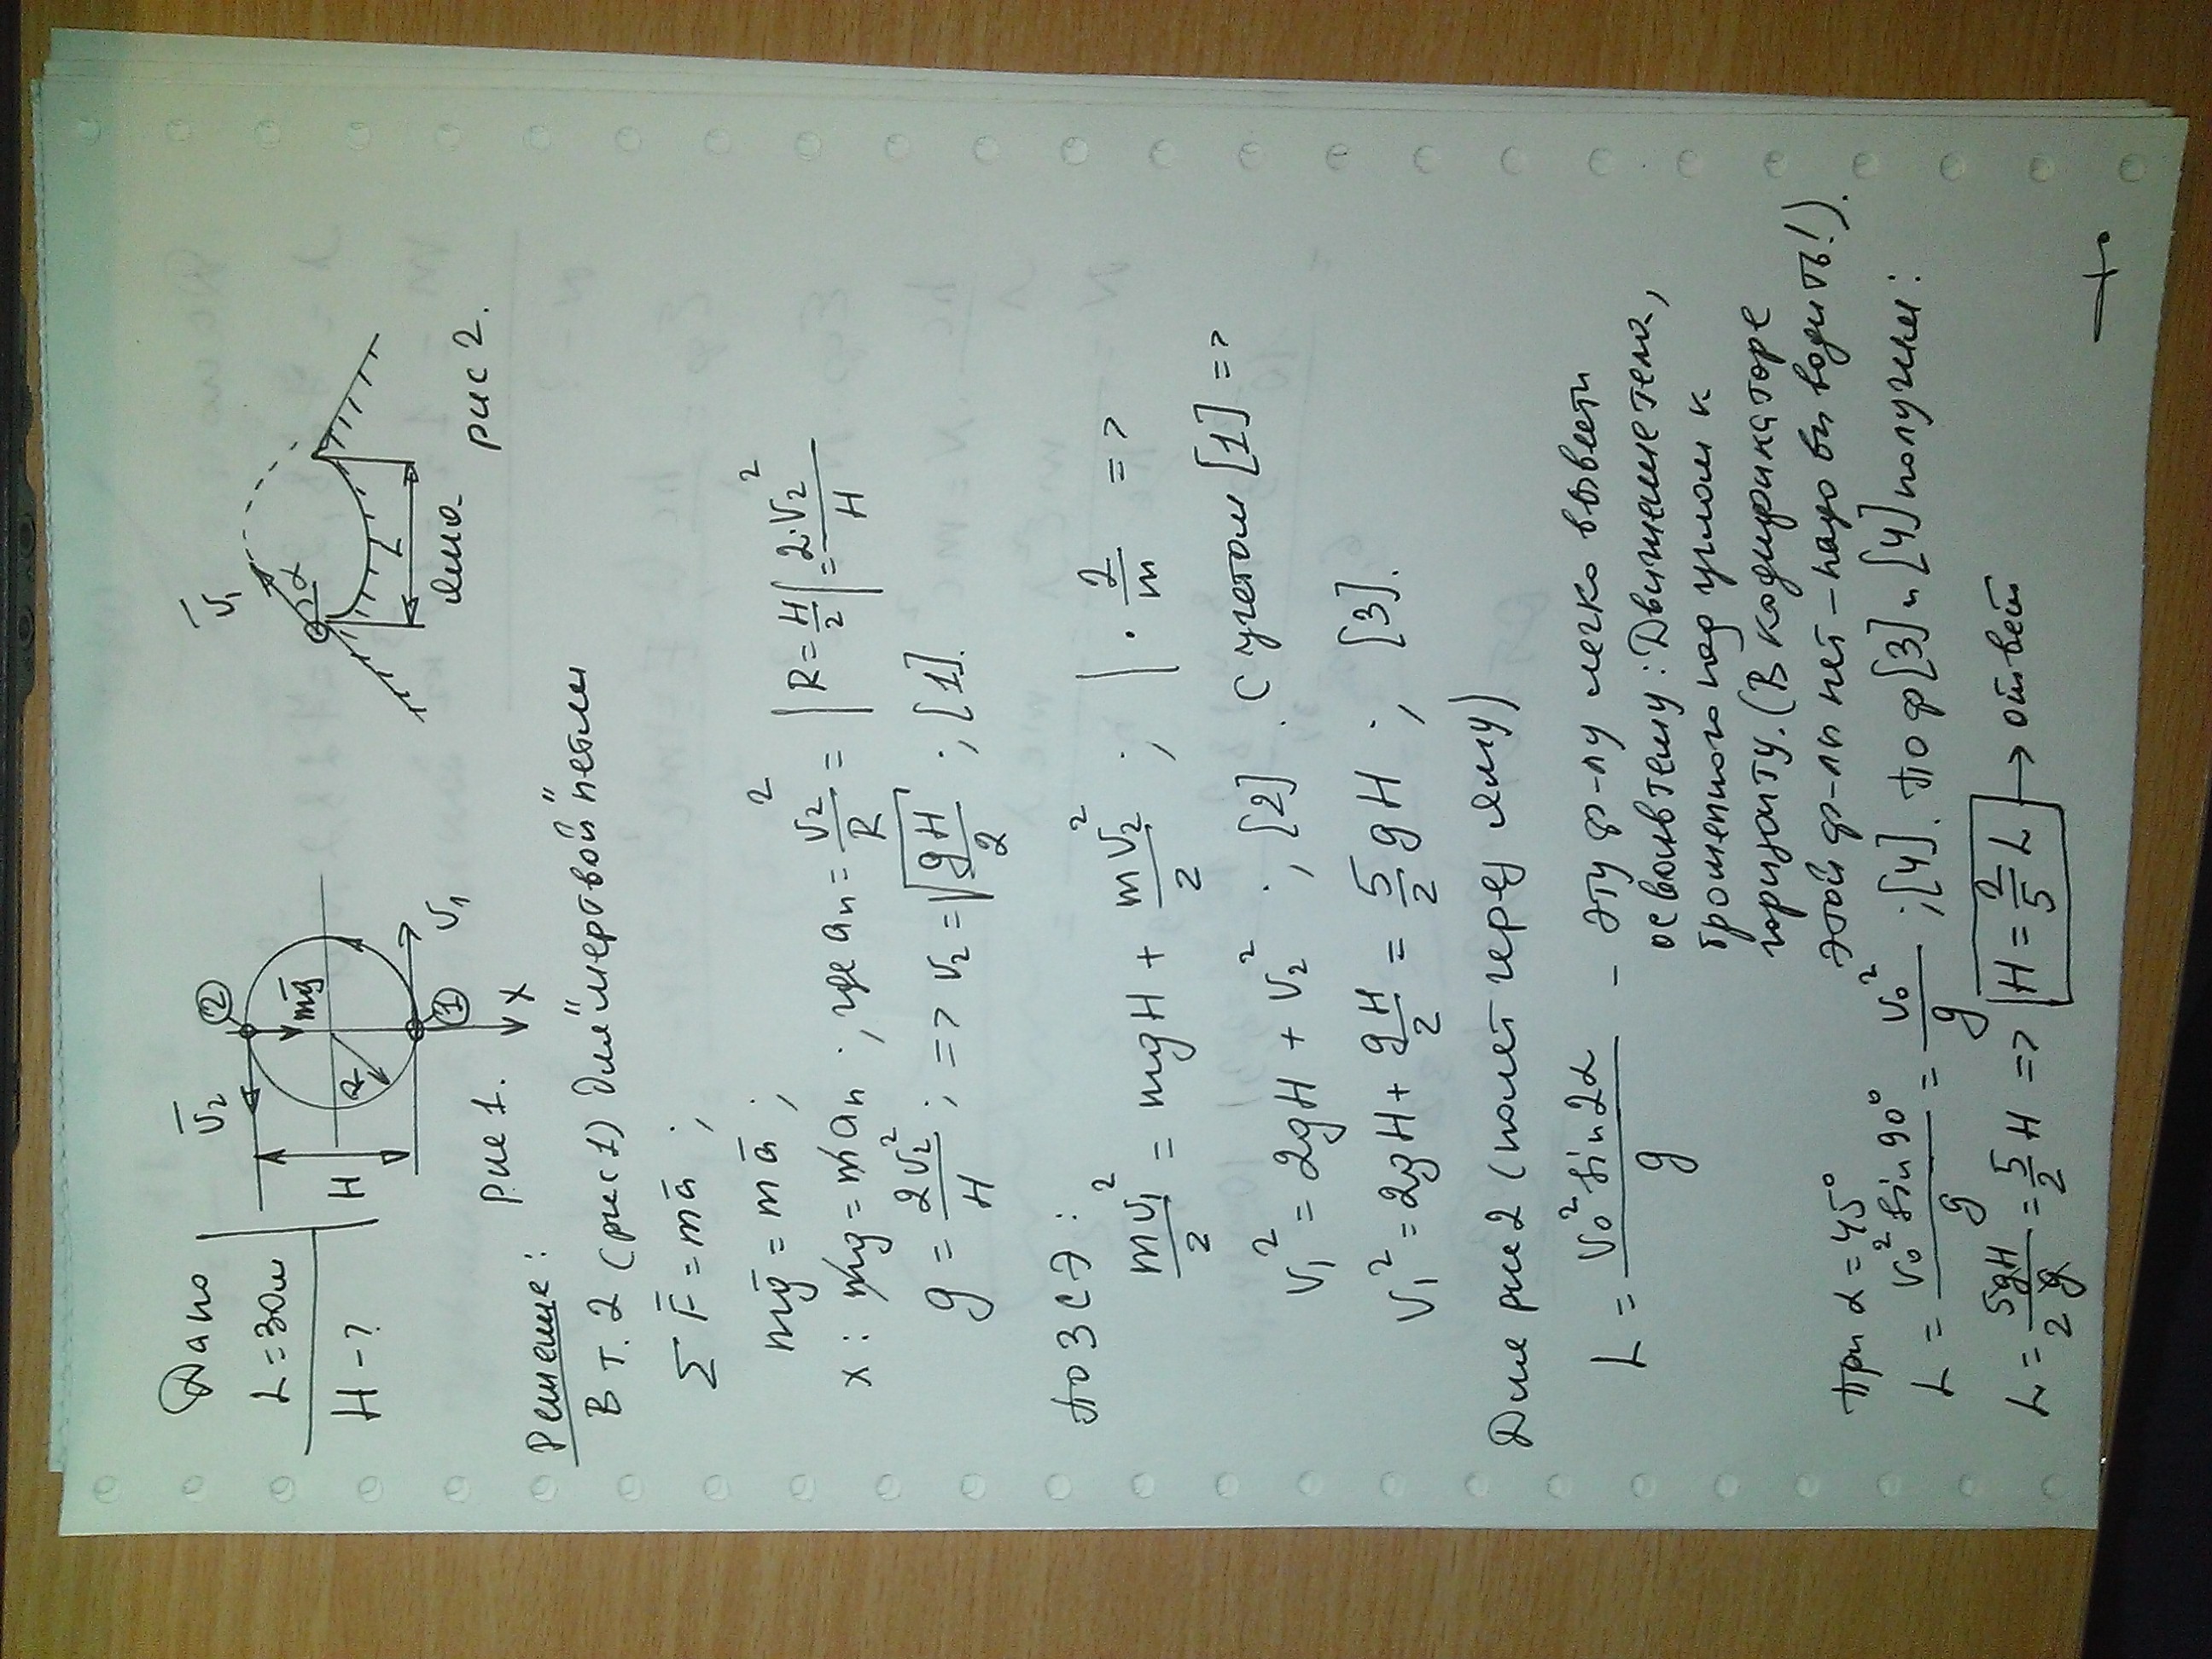 Дано
L = 30м
H - ?
v̄₂
②
mḡ
H
R
①
v₁
x
рис 1.
v̄₁
α
L
яма
рис 2.
Решение:
В т. 2 (рис 1) для "мертвой" петли
∑ F̄ = mā ;
mḡ = mā ;
x: mg = maₙ ; , где aₙ = v₂²/R = | R = H/2 | = 2·v₂²/H
g = 2v₂²/H ; => v₂ = √(gH/2) ; [1].
по ЗСЭ:
mv₁²/2 = mgH + mv₂²/2 ; | · 2/m =>
v₁² = 2gH + v₂² ; [2] . с учетом [1] =>
v₁² = 2gH + gH/2 = 5/2 gH ; [3].
Для рис 2 (полет через яму)
L = v₀² sin2α / g - эту ф-лу легко вывети
освоив тему: Движение тела,
брошенного под углом к
горизонту. (В кодификаторе
этой ф-лы нет - надо выводить!).
При α = 45°
L = v₀² sin90° / g = v₀²/g ; [4]. по ф [3] и [4] получим:
L = 5gH/2g = 5/2 H => H = 2/5 L → ответ